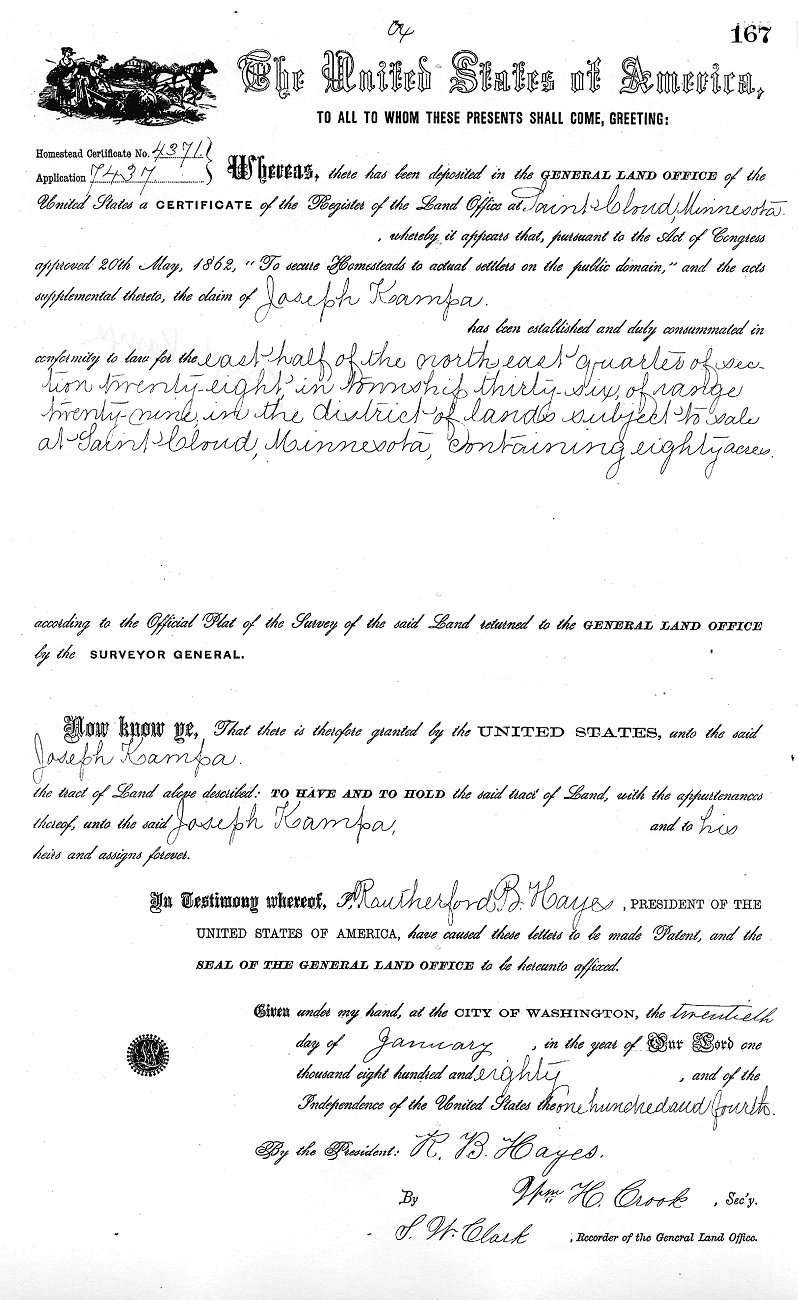 167
The United States of America,
TO ALL TO WHOM THESE PRESENTS SHALL COME, GREETING:
Homestead Certificate No. 4371.
Application 7437
Whereas, there has been deposited in the GENERAL LAND OFFICE of the
United States a CERTIFICATE of the Register of the Land Office at Saint Cloud, Minnesota
, whereby it appears that, pursuant to the Act of Congress
approved 20th May, 1862, "To secure Homesteads to actual settlers on the public domain," and the acts
supplemental thereto, the claim of Joseph Kampa.
has been established and duly consummated in
conformity to law for the east half of the north east quarter of sec-
tion twenty-eight, in township thirty-six, of range
twenty-nine, in the district of lands subject to sale
at Saint Cloud, Minnesota, containing eighty acres.
according to the Official Plat of the Survey of the said Land returned to the GENERAL LAND OFFICE
by the SURVEYOR GENERAL.
Now know ye, That there is therefore granted by the UNITED STATES, unto the said
Joseph Kampa.
the tract of Land above described: TO HAVE AND TO HOLD the said tract of Land, with the appurtenances
thereof, unto the said Joseph Kampa, and to his
heirs and assigns forever.
In Testimony whereof, I, Rautherford B. Hayes, PRESIDENT OF THE
UNITED STATES OF AMERICA, have caused these letters to be made Patent, and the
SEAL OF THE GENERAL LAND OFFICE to be hereunto affixed.
Given under my hand, at the CITY OF WASHINGTON, the twentieth
day of January, in the year of Our Lord one
thousand eight hundred and eighty, and of the
Independence of the United States the one hundred and fourth.
By the President: R. B. Hayes.
By Wm H. Crook, Sec'y.
S. W. Clark, Recorder of the General Land Office.